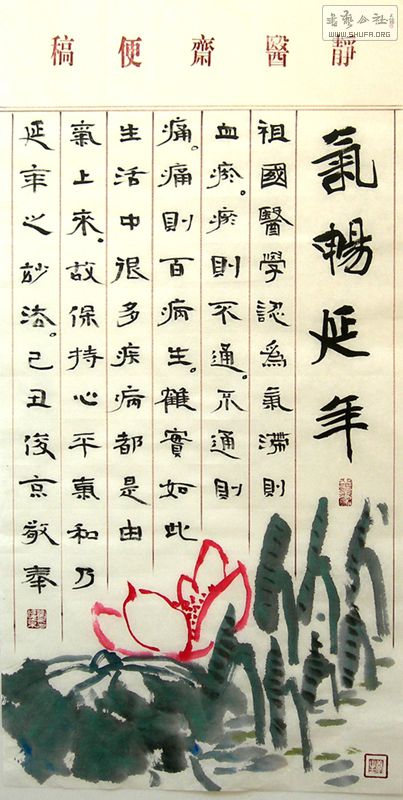 書藝公社
WWW.SHUFA.ORG
靜醫齋便稿
氣暢延年
祖國醫學認為氣滯則
血瘀。瘀則不通。不通則
痛。痛則百病生。確實如此
生活中很多疾病都是由
氣上來。故保持心平氣和乃
延年之妙法。己丑俊京敬奉